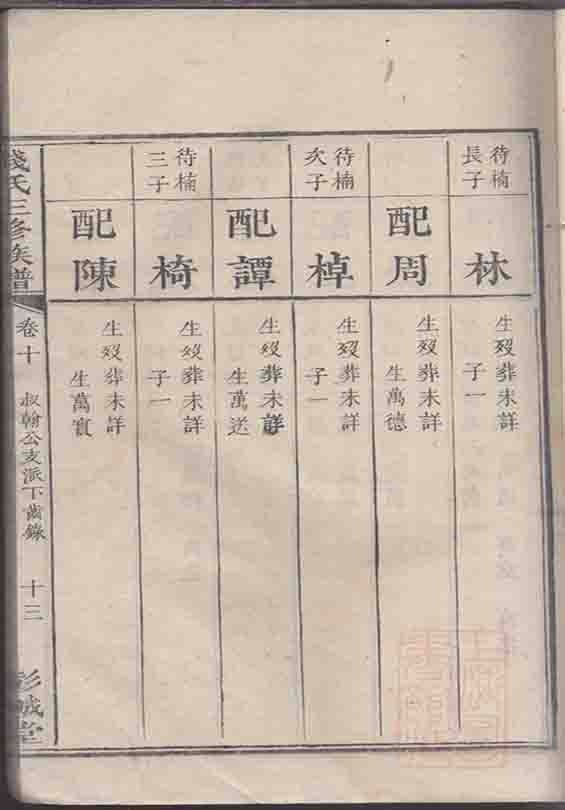 待楠
長子
林
生殁葬未詳
子一
配周
生殁葬未詳
生萬德
待楠
次子
棹
生殁葬未詳
子一
配譚
生殁葬未詳
生萬送
待楠
三子
椅
生殁葬未詳
子一
配陳
生殁葬未詳
生萬實
錢氏三修族譜
卷十
叔翰公支派下齒錄
十三
彭城堂